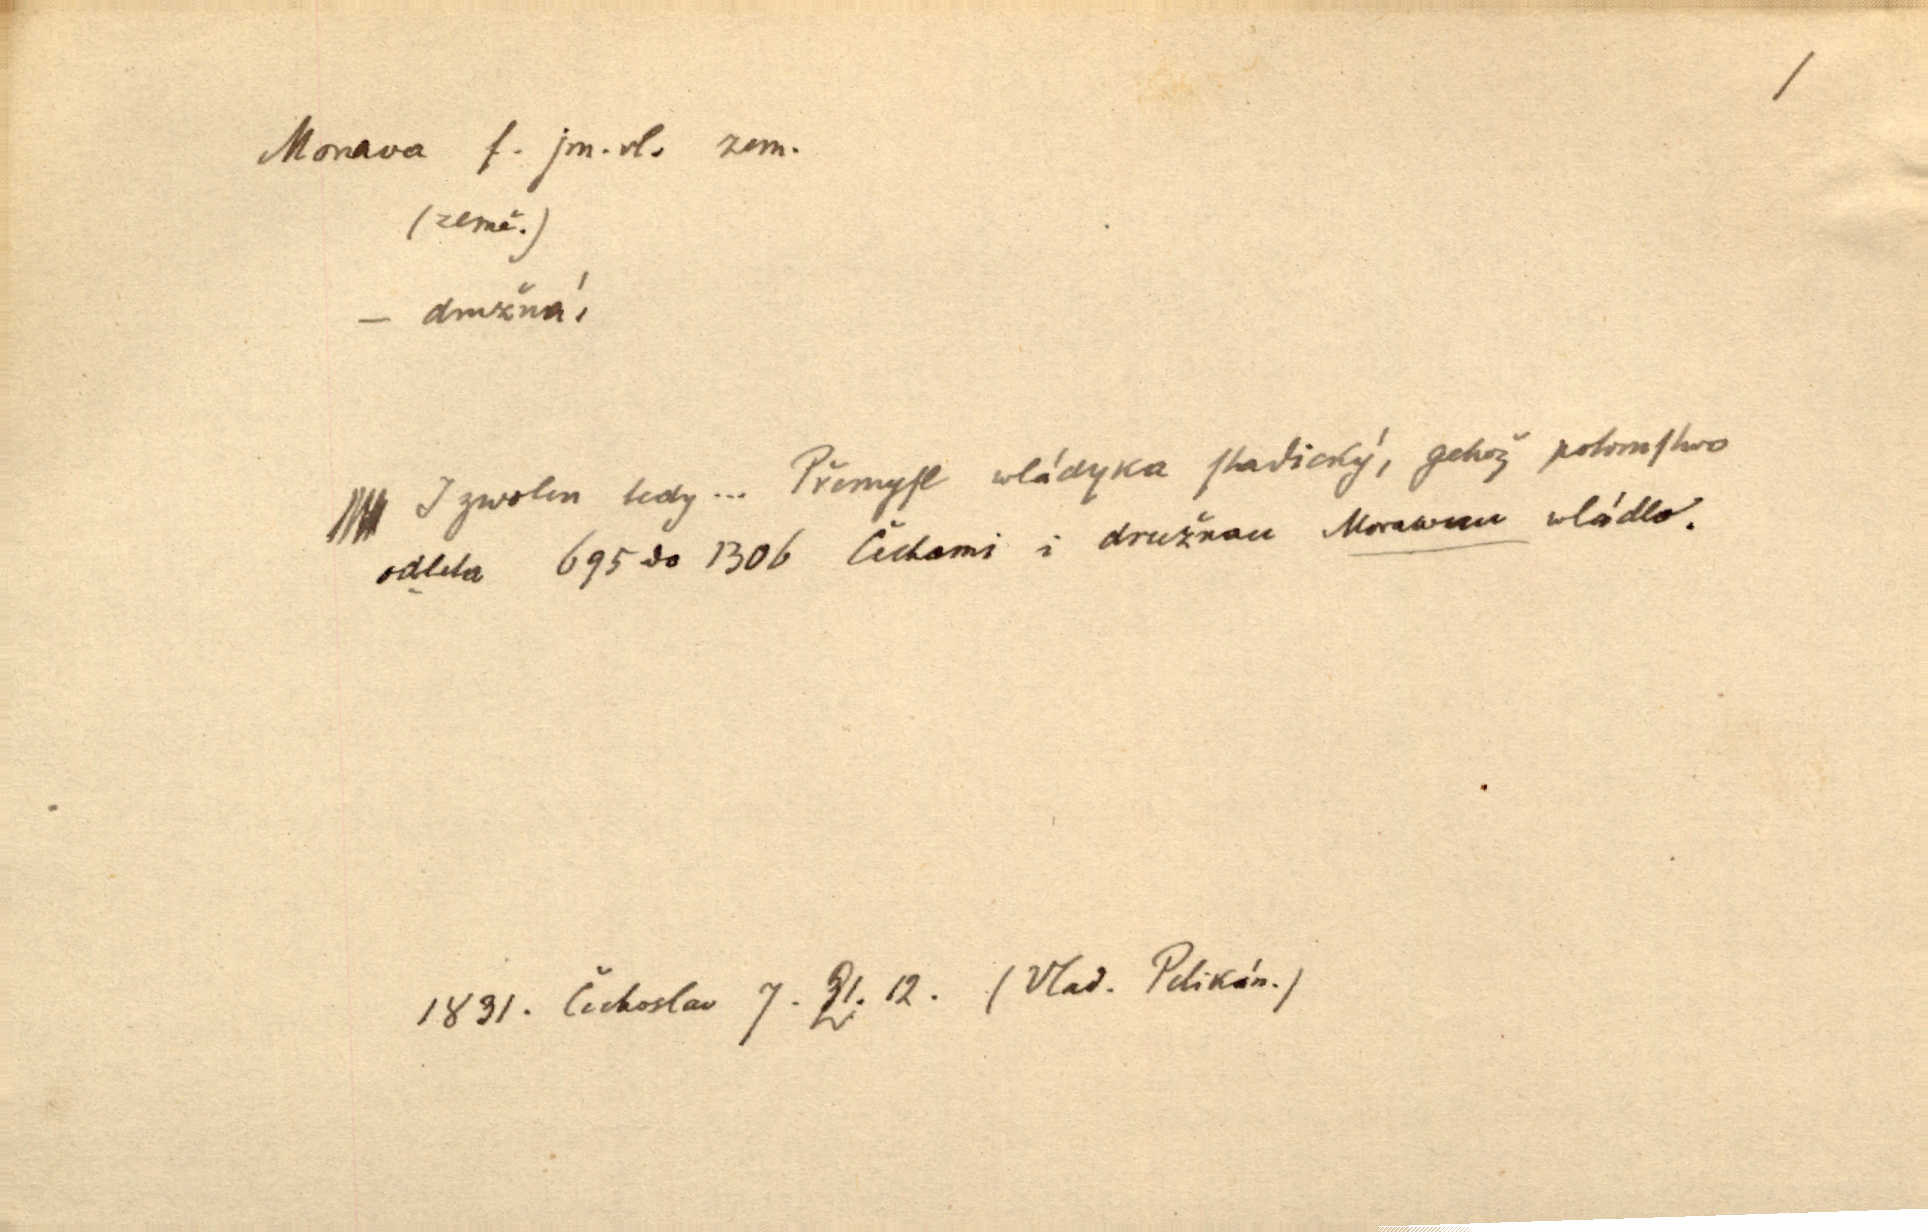 /
Morava f. jm. vl. zem.
(země.)
– družná,
Izwolen tedy... Přemyſl wládyka ſtadický, gehož potomſtwo
odleta 695 do 1306 Čechami i družnau Morawau wládlo.
1831. Čechoslav 7. 21. 12. (Vlad. Pelikán.)